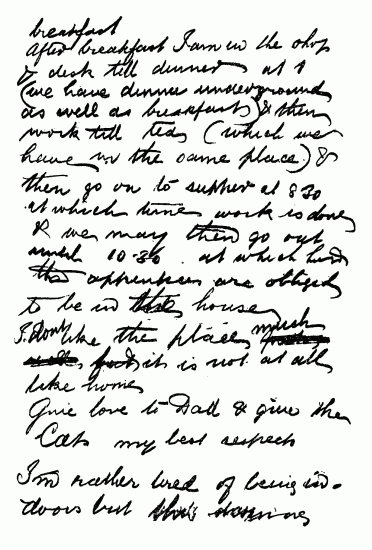 breakfast
after breakfast I am in the shop
& desk till dinner at 1
(we have dinner underground
as well as breakfast) & then
work till tea (which we
have in the same place) &
then go on to supper at 8.30
at which time work is done
& we may then go out
until 10.30 at which hour
the apprentices are obliged
to be in the house
I don't like the place much
it is not at all
like home
Give love to Dad & give the
Cats my best respects
I'm rather tired of being in-
doors but